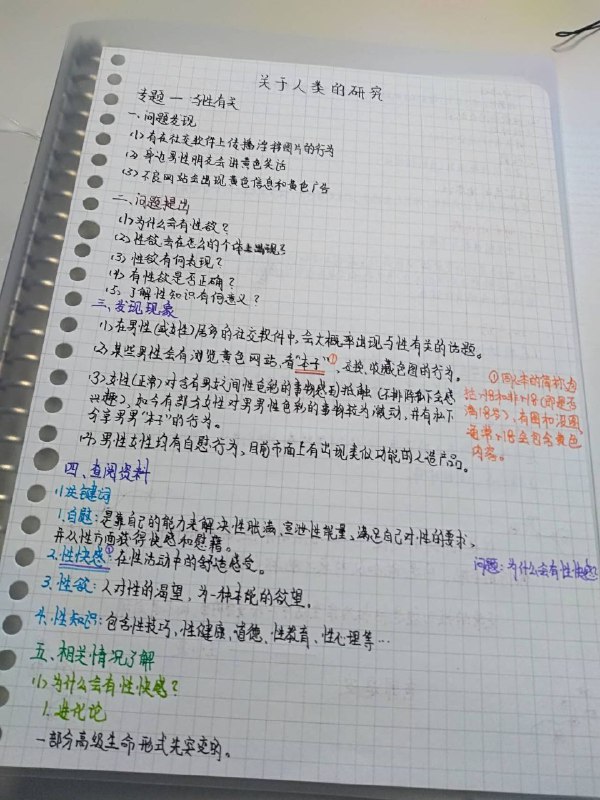 关于人类的研究
专题一 与性有关
一、问题发现
(1)有在社交软件上传播淫秽图片的行为
(2)身边男性朋友会讲黄色笑话
(3)不良网站会出现黄色信息和黄色广告
二、问题提出
(1)为什么会有性欲？
(2)性欲会在怎么的个体上出现？
(3)性欲有何表现？
(4)有性欲是否正确？
(5)了解性知识有何意义？
三、发现现象
(1)在男性(或女性)居多的社交软件中，会大概率出现与性有关的话题。
(2)某些男性会有浏览黄色网站，看"本子"①，交换、收藏色图的行为。
(3)女性(正常)对含有男女间性色彩的事物感到抵触(不排除私下会感
兴趣)，如今有部分女性对男男性色彩的事物较为激动，并有私下
分享男男"本子"的行为。
(4)男性女性均有自慰行为，目前市面上有出现类似功能的人造产品。
①同人本的简称，包
括r18和非r18(即是否
满18岁)，有图和漫画，
通常r18会包含黄色
内容。
四、查阅资料
(1)关键词
1.自慰：是靠自己的能力来解决性胀满、宣泄性能量、满足自己对性的要求，
并从性方面获得快感和慰藉。
2.性快感①：在性活动中的舒适感受。
问题：为什么会有性快感？
3.性欲：人对性的渴望，为一种本能的欲望。
4.性知识：包含性技巧，性健康，道德、性教育、性心理等…
五、相关情况了解
(1)为什么会有性快感？
1.进化论
一部分高级生命形式先突变的。